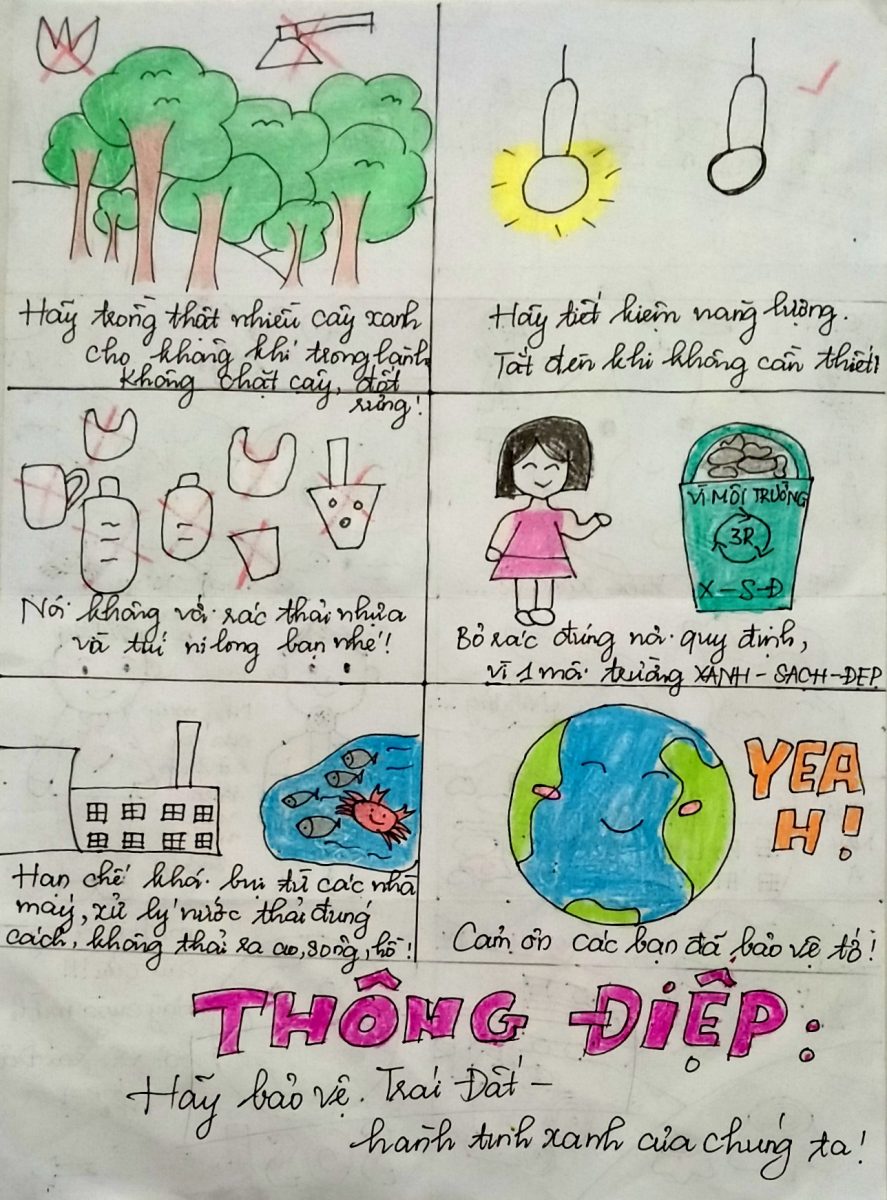 Hãy trồng thật nhiều cây xanh
cho không khí trong lành
Không chặt cây, đốt
rừng!
Hãy tiết kiệm năng lượng.
Tắt đèn khi không cần thiết!
Nói không với rác thải nhựa
và túi ni long bạn nhé!
VÌ MÔI TRƯỜNG
3R
X-S-Đ
Bỏ rác đúng nơi quy định,
vì 1 môi trường XANH-SẠCH-ĐẸP
Hạn chế khói bụi từ các nhà
máy, xử lý nước thải đúng
cách, không thải ra ao, sông, hồ!
YEA
H!
Cảm ơn các bạn đã bảo vệ tớ!
THÔNG ĐIỆP:
Hãy bảo vệ Trái Đất -
hành tinh xanh của chúng ta!